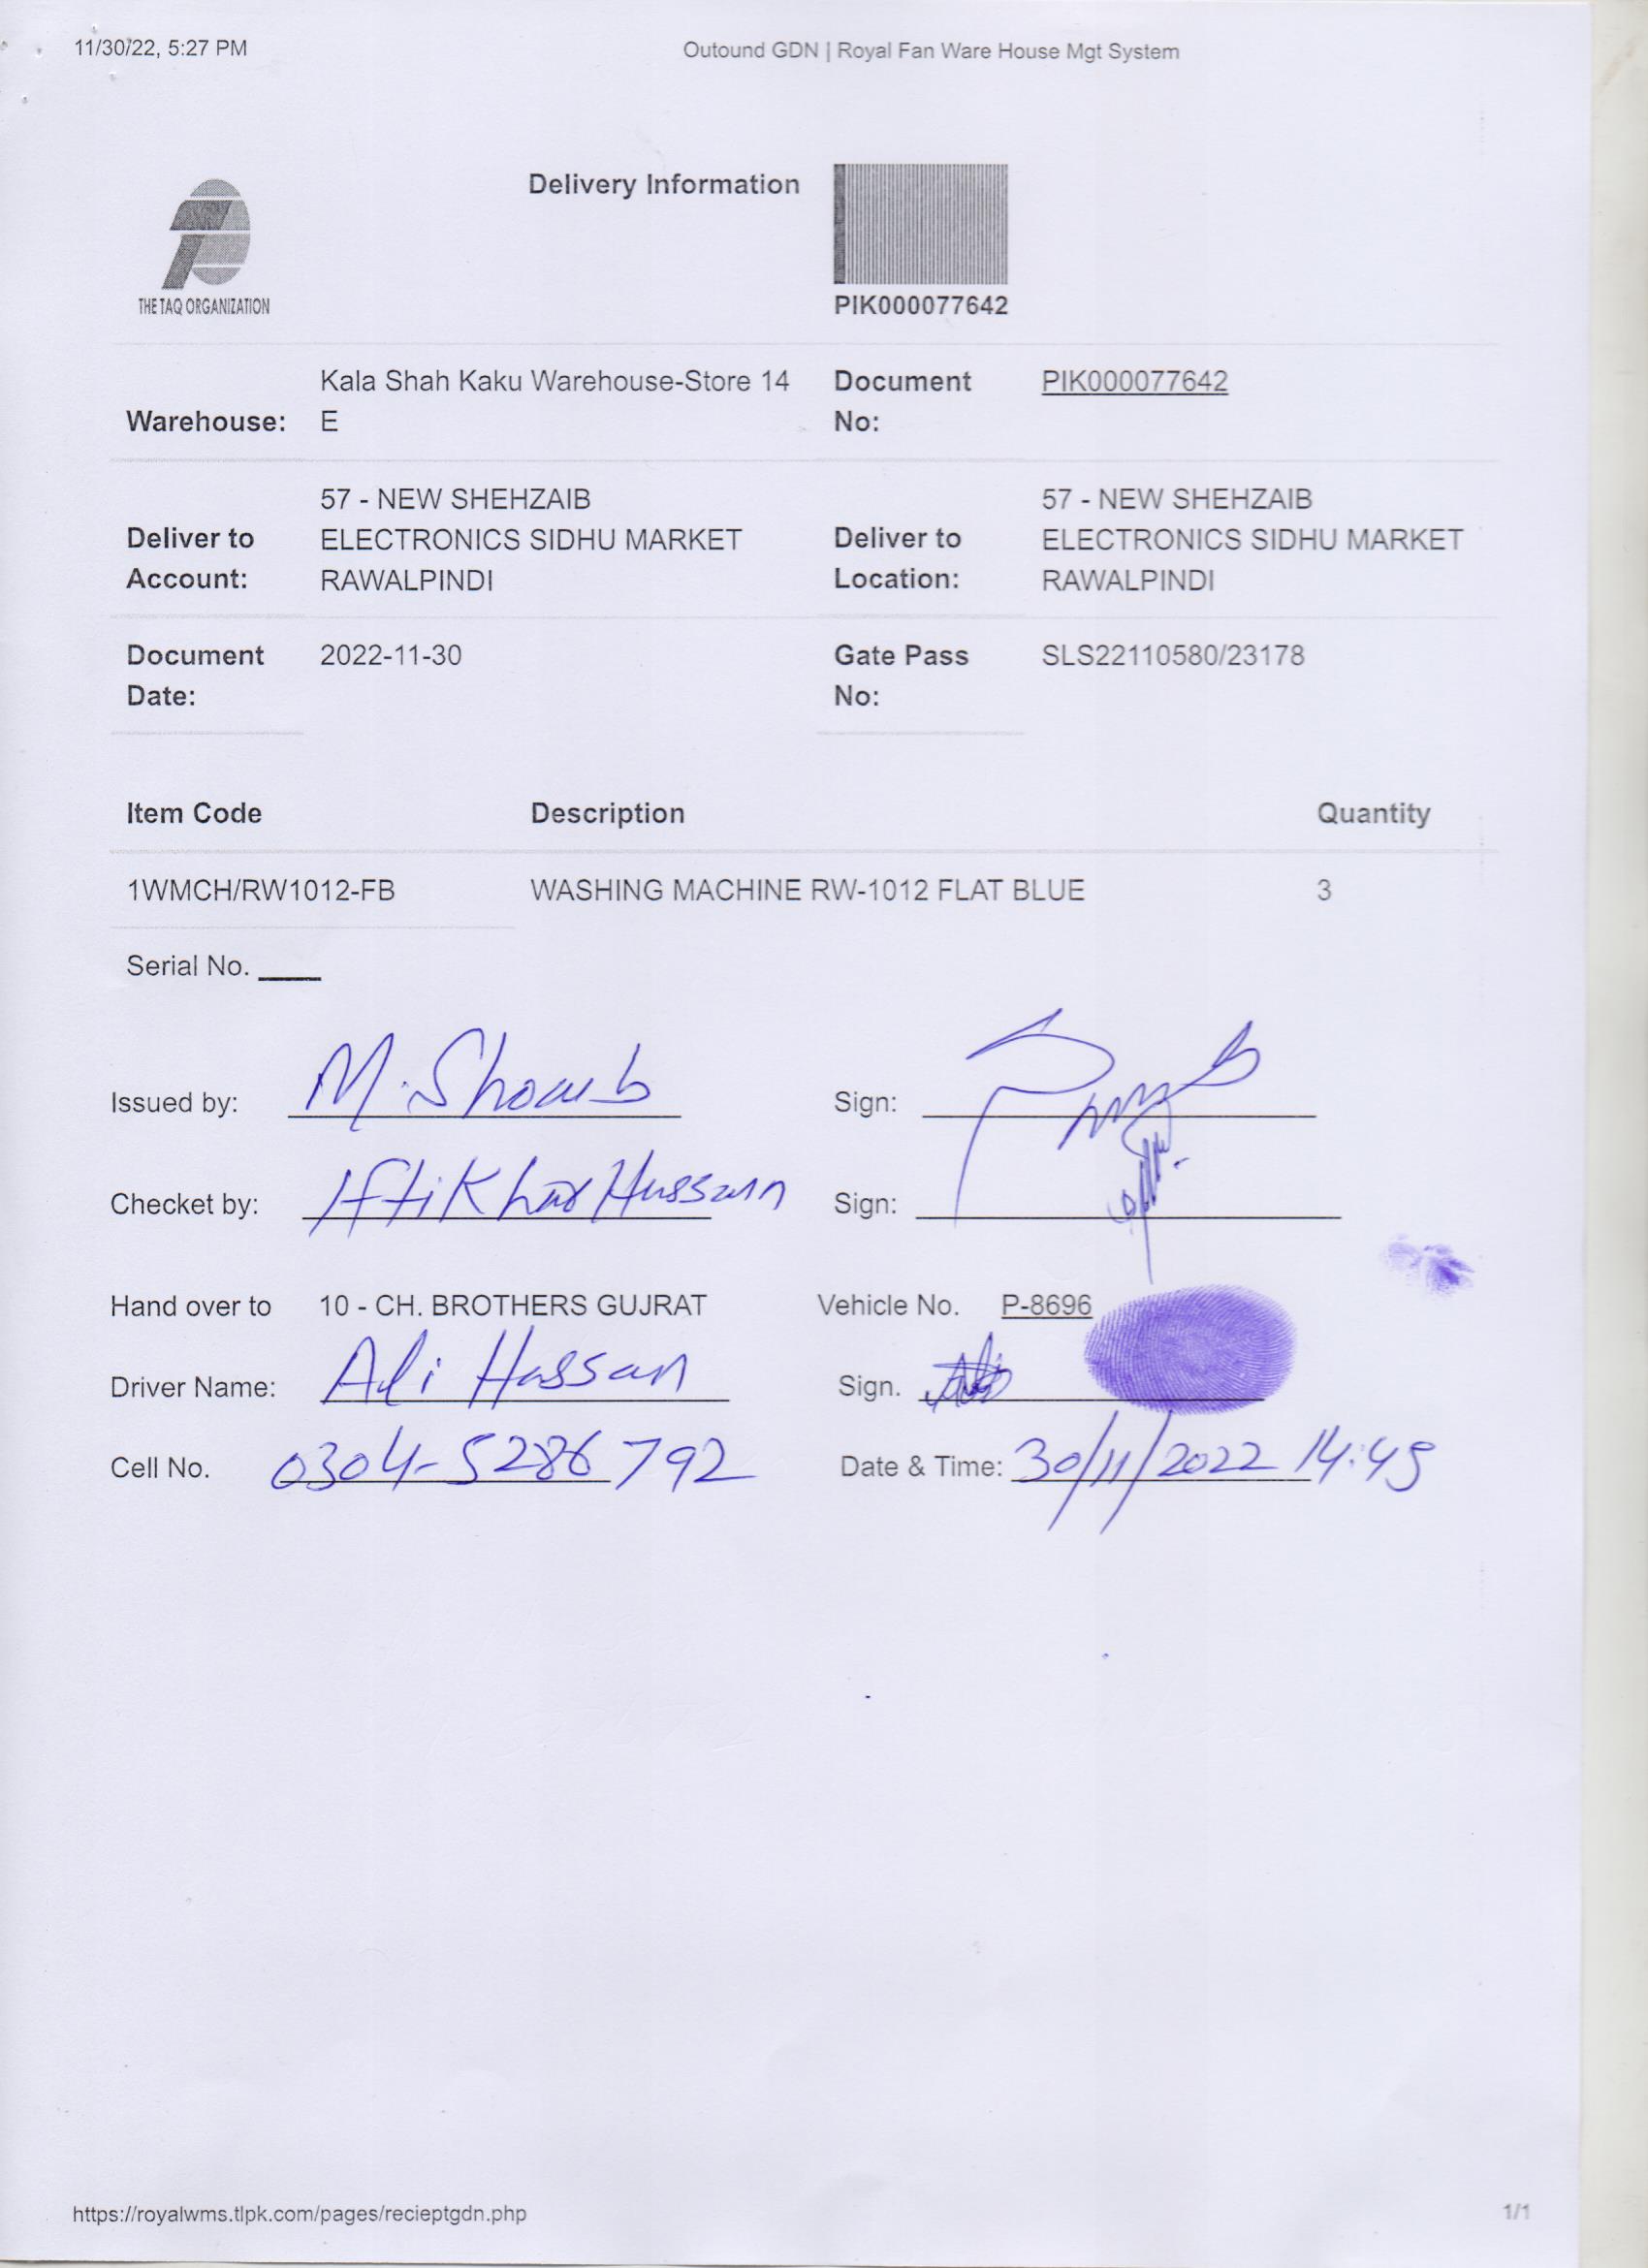 11/30/22, 5:27 PM
Outound GDN | Royal Fan Ware House Mgt System
THE TAQ ORGANIZATION
Delivery Information
PIK000077642
Warehouse: Kala Shah Kaku Warehouse-Store 14 E
Document No: PIK000077642
Deliver to Account: 57 - NEW SHEHZAIB ELECTRONICS SIDHU MARKET RAWALPINDI
Deliver to Location: 57 - NEW SHEHZAIB ELECTRONICS SIDHU MARKET RAWALPINDI
Document Date: 2022-11-30
Gate Pass No: SLS22110580/23178
Item Code Description Quantity
1WMCH/RW1012-FB WASHING MACHINE RW-1012 FLAT BLUE 3
Serial No.
Issued by: M. Shoaib Sign:
Checket by: Iftikhar Hussain Sign:
Hand over to 10 - CH. BROTHERS GUJRAT Vehicle No. P-8696
Driver Name: Ali Hassan Sign.
Cell No. 0304-5286792 Date & Time: 30/11/2022 14:45
https://royalwms.tlpk.com/pages/recieptgdn.php
1/1